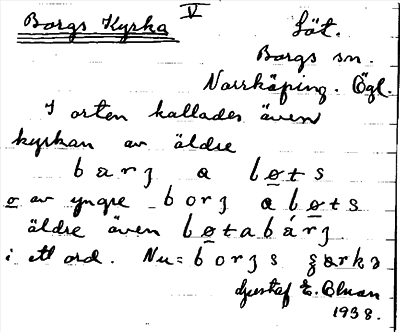 Borgs Kyrka V Löt.
Borgs sn.
Norrköping. Ögl.
I orten kallades även
kyrkan av äldre
barʒ a løts
o av yngre borʒ a bløts
äldre även løtabárʒ
i ett ord. Nu = borʒs
Gustaf E. Bluan
1938.